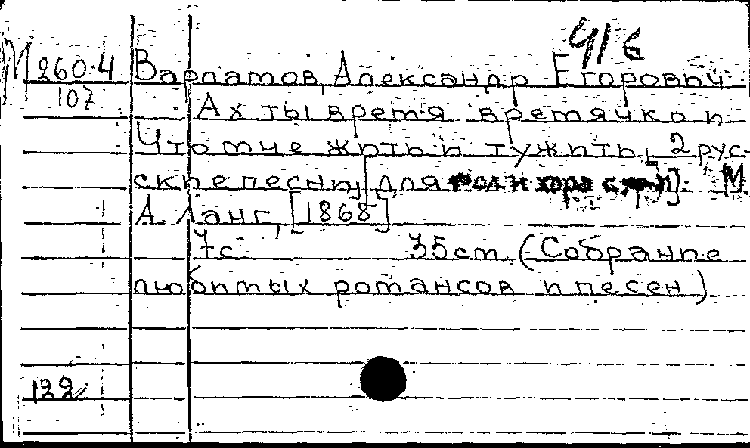 41 6
М 260.4 Варламов, Александр Егорович
107 Ах ты время времячко и
Что мне жить и тужить, 2 рус-
ские песни, [для хора М.
А. Ланг, [1868]
7с 35см. (Собрание
любимых романсов и песен)
122